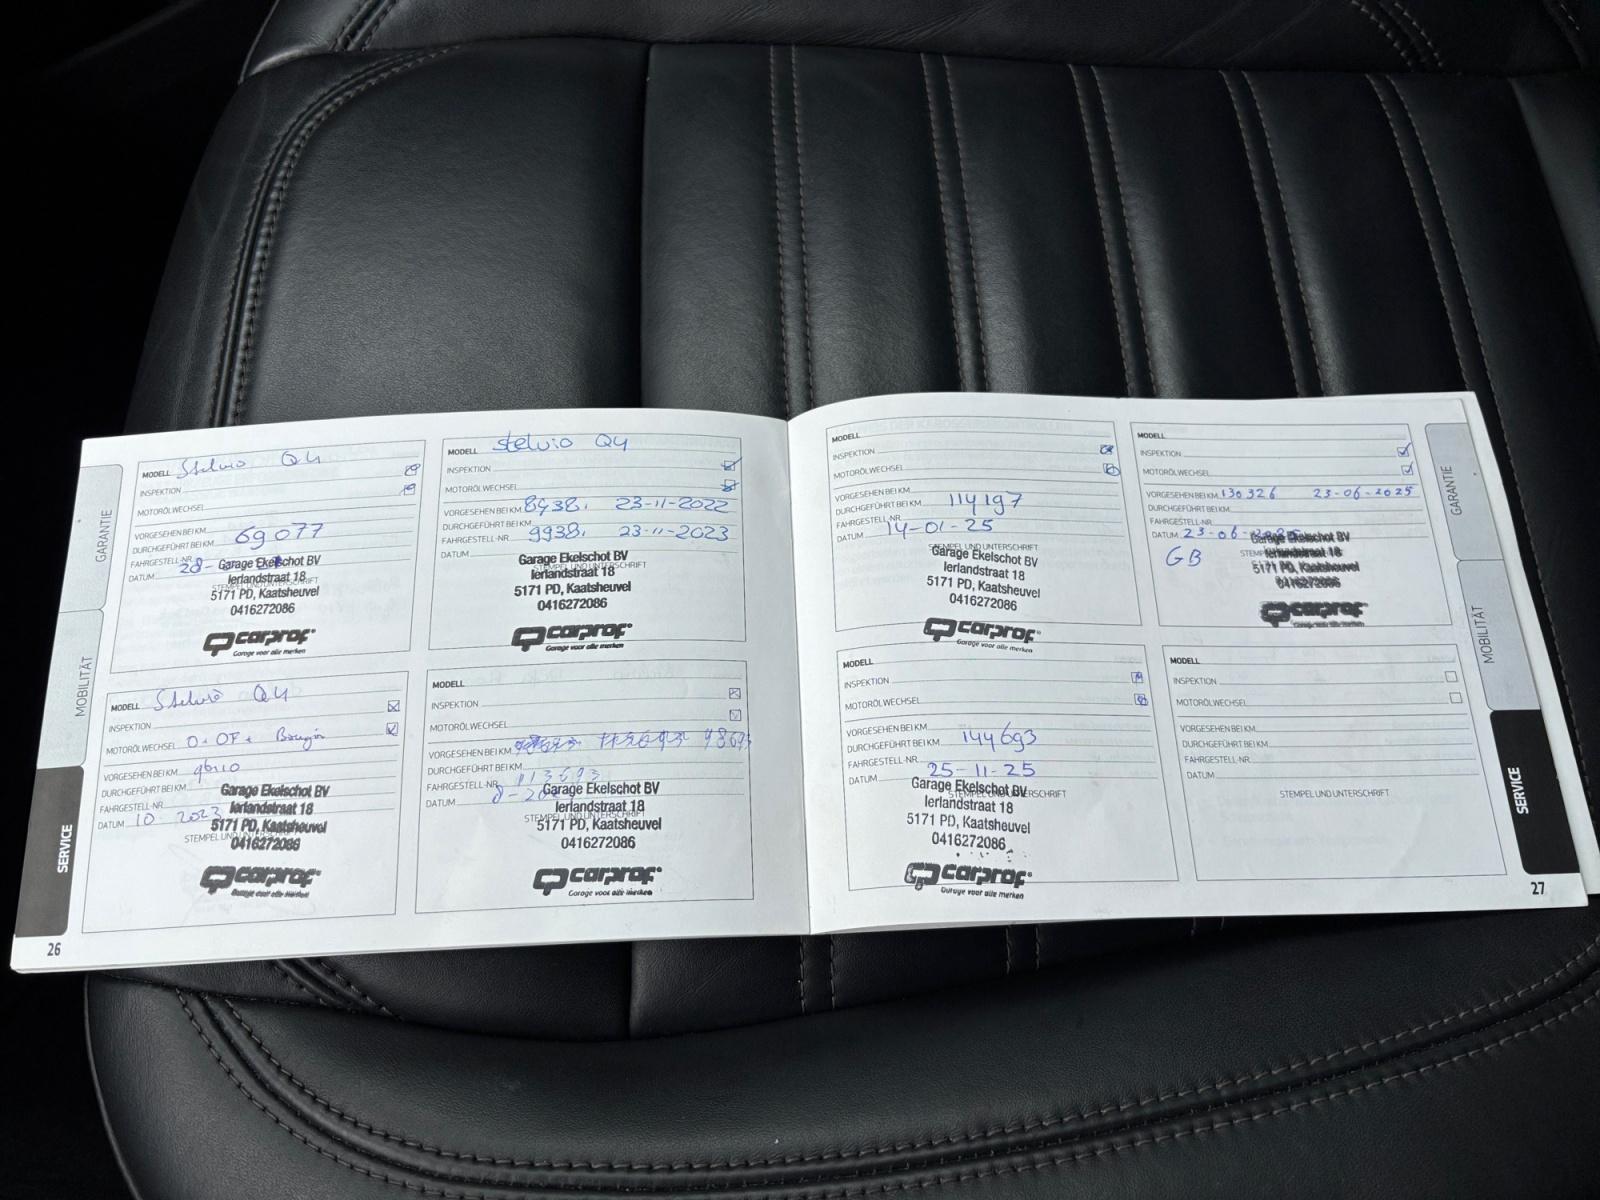 GARANTIE
MOBILITÄT
SERVICE
26
MODELL Stelvio Q4
INSPEKTION
MOTORÖLWECHSEL
VORGESEHEN BEI KM
DURCHGEFÜHRT BEI KM 69077
FAHRGESTELL-NR.
DATUM 28-
STEMPEL UND UNTERSCHRIFT
Garage Ekelschot BV
Ierlandstraat 18
5171 PD, Kaatsheuvel
0416272086
carprof
Garage voor alle merken
MODELL Stelvio Q4
INSPEKTION
MOTORÖLWECHSEL
VORGESEHEN BEI KM 8938. 23-11-2022
DURCHGEFÜHRT BEI KM
FAHRGESTELL-NR. 9938. 23-11-2023
DATUM
STEMPEL UND UNTERSCHRIFT
Garage Ekelschot BV
Ierlandstraat 18
5171 PD, Kaatsheuvel
0416272086
carprof
Garage voor alle merken
MODELL Stelvio Q4
INSPEKTION
MOTORÖLWECHSEL O + OF +
VORGESEHEN BEI KM
DURCHGEFÜHRT BEI KM
FAHRGESTELL-NR.
DATUM 10 2023
STEMPEL UND UNTERSCHRIFT
Garage Ekelschot BV
Ierlandstraat 18
5171 PD, Kaatsheuvel
0416272086
carprof
Garage voor alle merken
MODELL
INSPEKTION
MOTORÖLWECHSEL
VORGESEHEN BEI KM
DURCHGEFÜHRT BEI KM
FAHRGESTELL-NR. 113693
DATUM
STEMPEL UND UNTERSCHRIFT
Garage Ekelschot BV
Ierlandstraat 18
5171 PD, Kaatsheuvel
0416272086
carprof
Garage voor alle merken
MODELL
INSPEKTION
MOTORÖLWECHSEL
VORGESEHEN BEI KM
DURCHGEFÜHRT BEI KM 114197
FAHRGESTELL-NR.
DATUM 14-01-25
STEMPEL UND UNTERSCHRIFT
Garage Ekelschot BV
Ierlandstraat 18
5171 PD, Kaatsheuvel
0416272086
carprof
Garage voor alle merken
MODELL
INSPEKTION
MOTORÖLWECHSEL
VORGESEHEN BEI KM 130326 23-06-2025
DURCHGEFÜHRT BEI KM
FAHRGESTELL-NR.
DATUM 23-06-2025
GB
Garage Ekelschot BV
Ierlandstraat 18
5171 PD, Kaatsheuvel
0416272086
carprof
Garage voor alle merken
MODELL
INSPEKTION
MOTORÖLWECHSEL
VORGESEHEN BEI KM
DURCHGEFÜHRT BEI KM 144693
FAHRGESTELL-NR.
DATUM 25-11-25
STEMPEL UND UNTERSCHRIFT
Garage Ekelschot BV
Ierlandstraat 18
5171 PD, Kaatsheuvel
0416272086
carprof
Garage voor alle merken
MODELL
INSPEKTION
MOTORÖLWECHSEL
VORGESEHEN BEI KM
DURCHGEFÜHRT BEI KM
FAHRGESTELL-NR.
DATUM
STEMPEL UND UNTERSCHRIFT
GARANTIE
MOBILITÄT
SERVICE
27